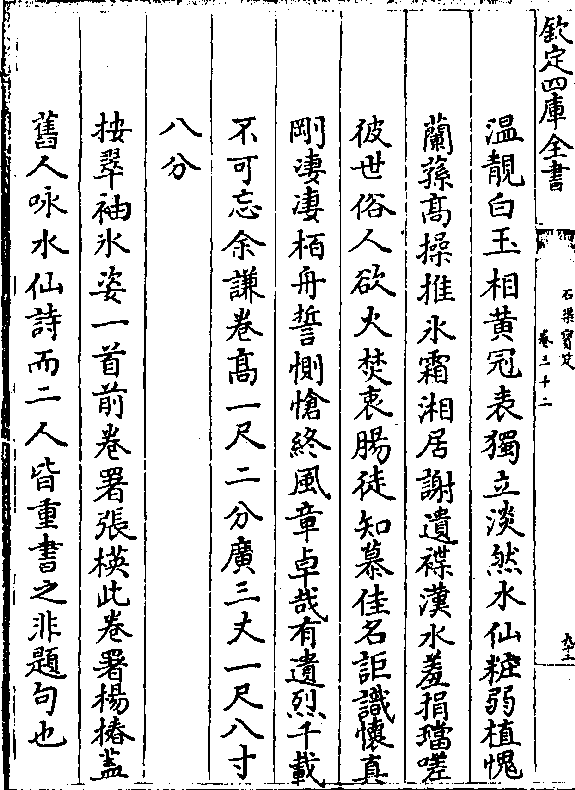 欽定四庫全書
石渠寶笈
卷三十二
温靚白玉相黄冠表獨立淡然水仙糚弱植愧
蘭蓀髙操推氷霜湘居謝遺褋漢水羞捐璫嗟
彼世俗人欲火焚衷腸徒知慕佳名詎識懷真
剛凄凄栢舟誓惻愴終風章卓哉有遺烈千載
不可忘余謙卷髙一尺二分廣三丈一尺八寸
八分
按翠袖氷姿一首前卷署張楧此卷署楊椿盖
舊人咏水仙詩而二人皆重書之非題句也